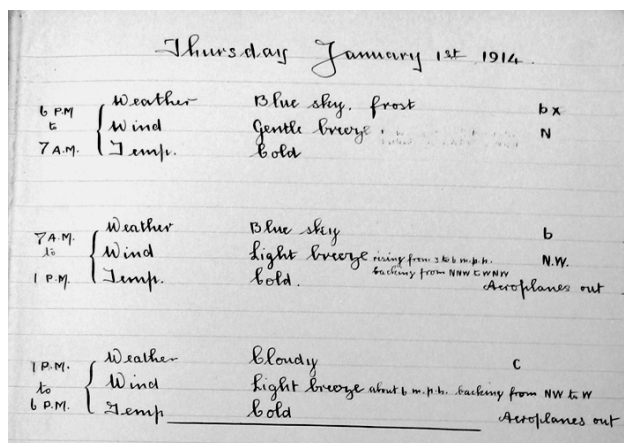 Thursday January 1st 1914.
6 P.M. Weather Blue sky. frost bx
to Wind Gentle breeze. N
7 A.M. Temp. Cold
7 A.M. Weather Blue sky b
to Wind Light breeze rising from 3 to 6 m.p.h. N.W.
backing from NNW to WNW
1 P.M. Temp. Cold. Aeroplanes out
1 P.M. Weather Cloudy c
to Wind Light breeze about 6 m.p.h. backing from NW to W
6 P.M. Temp Cold Aeroplanes out